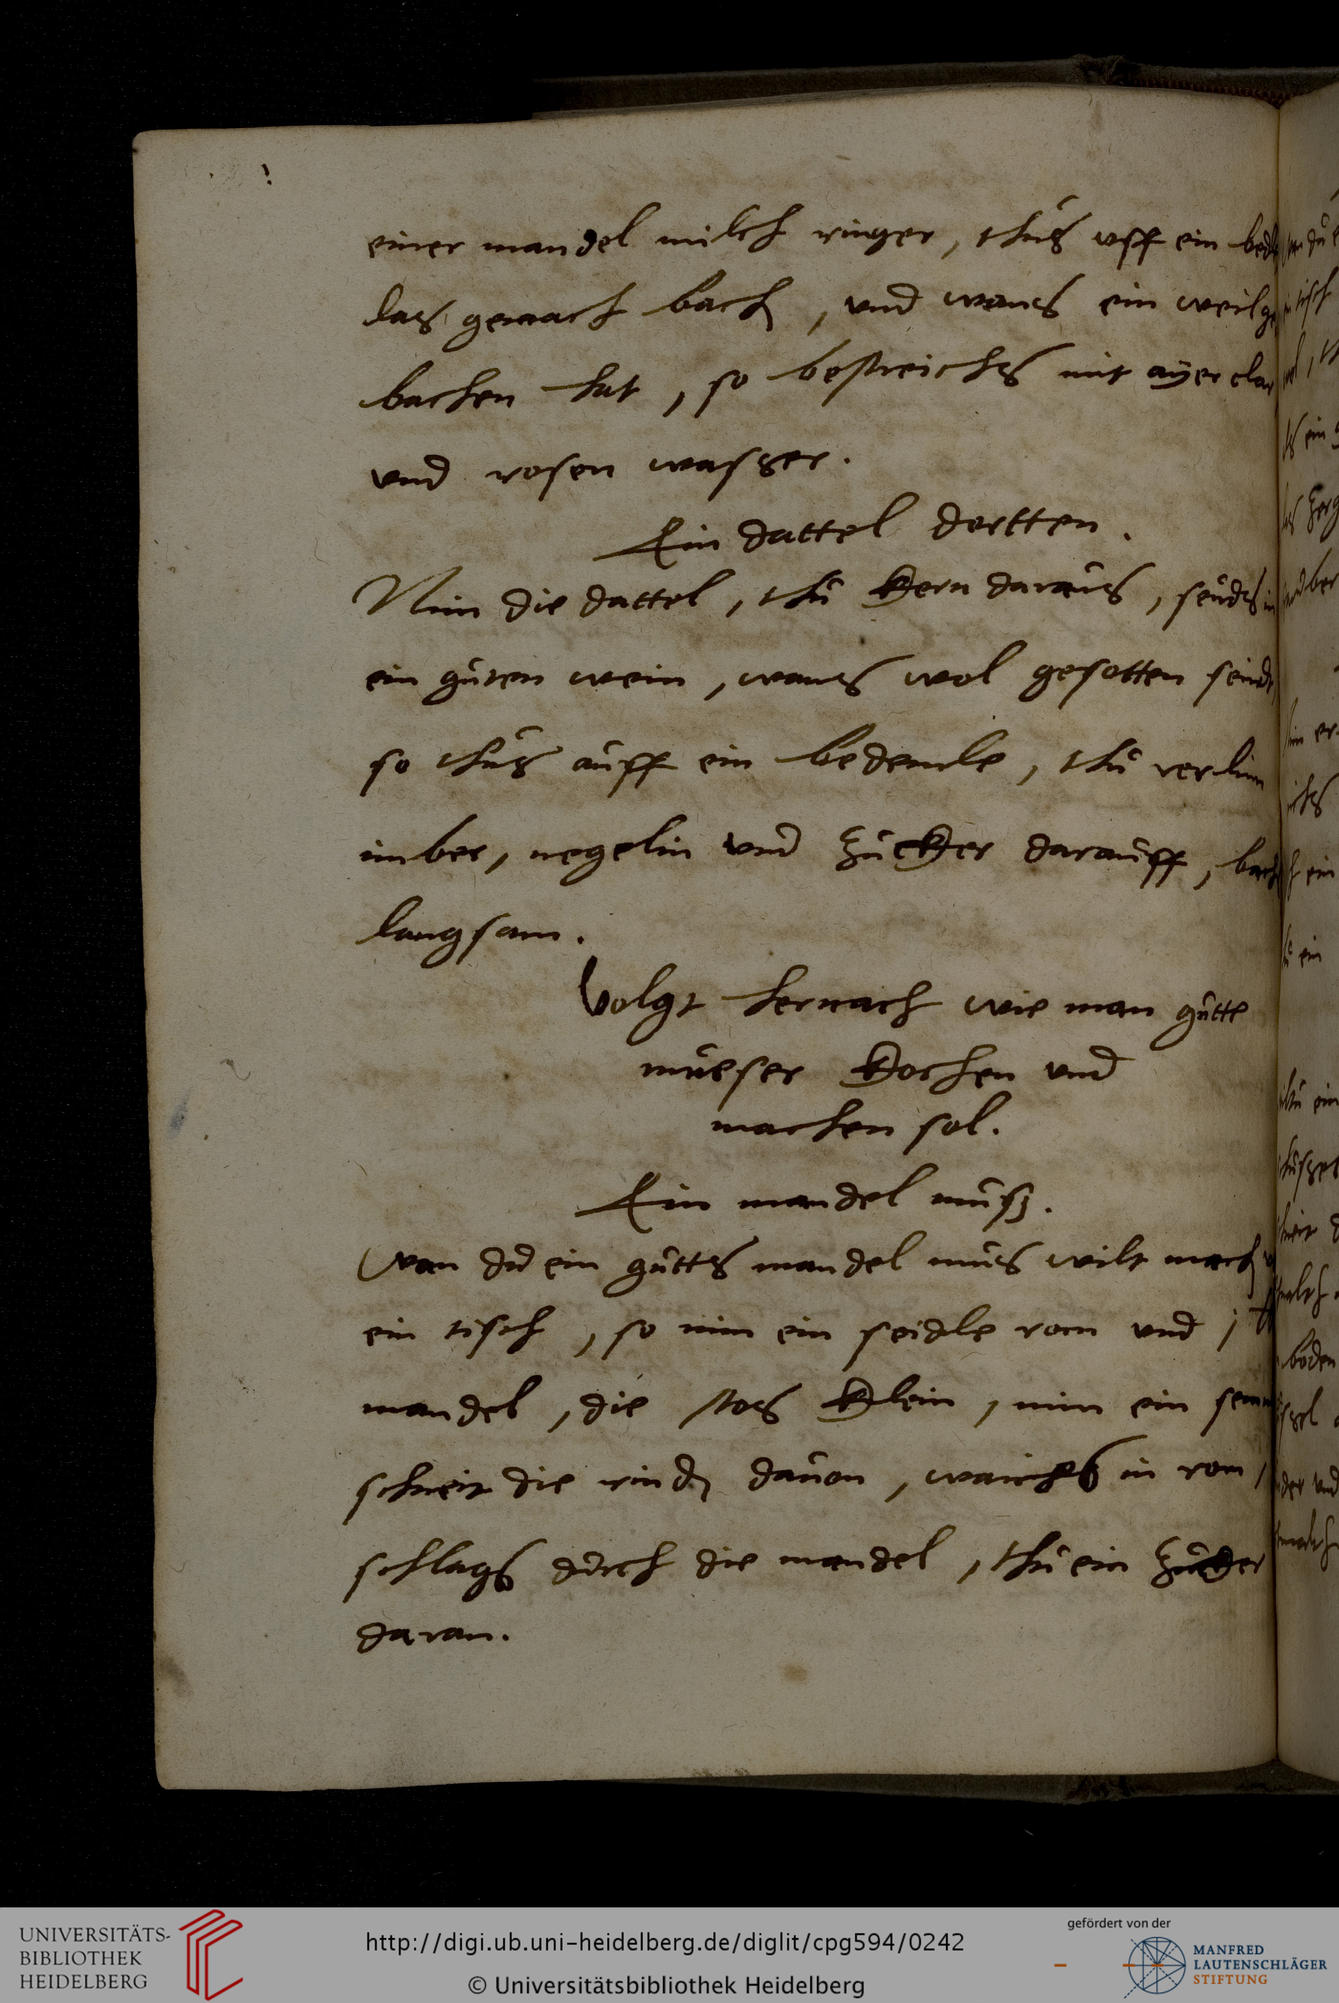 einer mandel milch ringer, thus uff ein bed
las gemach bach, und wans ein weil ge
bachen hat, so bestreichs mit ayer clar
und rosen wasser.
Ein dattel dortten.
Nim die dattel, thu kern daraus, seuds in
ein guten wein, wans wol gesotten seind,
so thus auff ein bedemle, thu
imber, negelin und zucker darauff, bach
langsam.
Volgt hernach wie man gutte
mueser kochen und
machen sol.
Ein mandel musz.
Wan du ein gutts mandel mus wilt mach
ein tisch, so nim ein seidle rom und j
mandel, die stos klein, nim ein sem
schneit die rind davon, waichs in rom,
schlags durch die mandel, thu ein zucker
daran.
UNIVERSITÄTS-
BIBLIOTHEK
HEIDELBERG
http://digi.ub.uni-heidelberg.de/diglit/cpg594/0242
© Universitätsbibliothek Heidelberg
gefördert von der
MANFRED
LAUTENSCHLÄGER
STIFTUNG